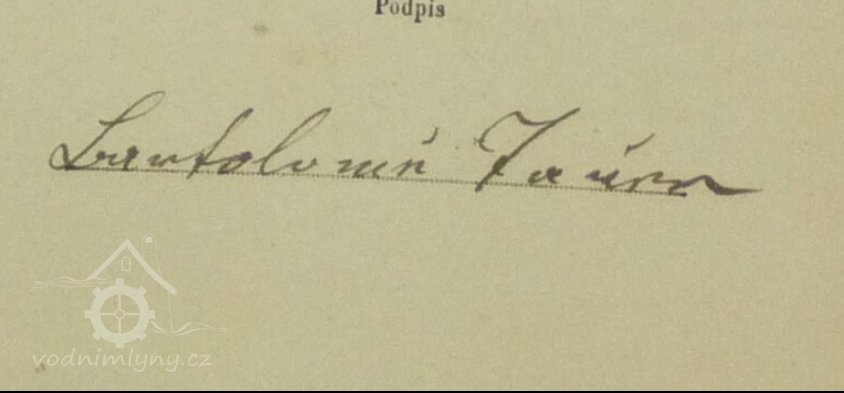 Podpis
Bartoloměj Jaúra
vodnimlyny.cz